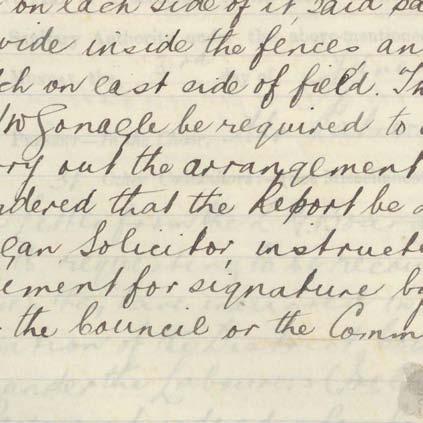 on each side of it, said pa
vide inside the fences an
ch on east side of field. Th
McGonagle be required to
rry out the arrangement
rdered that the Report be
ean Solicitor, instructe
ement for signature by
the Council or the Comm